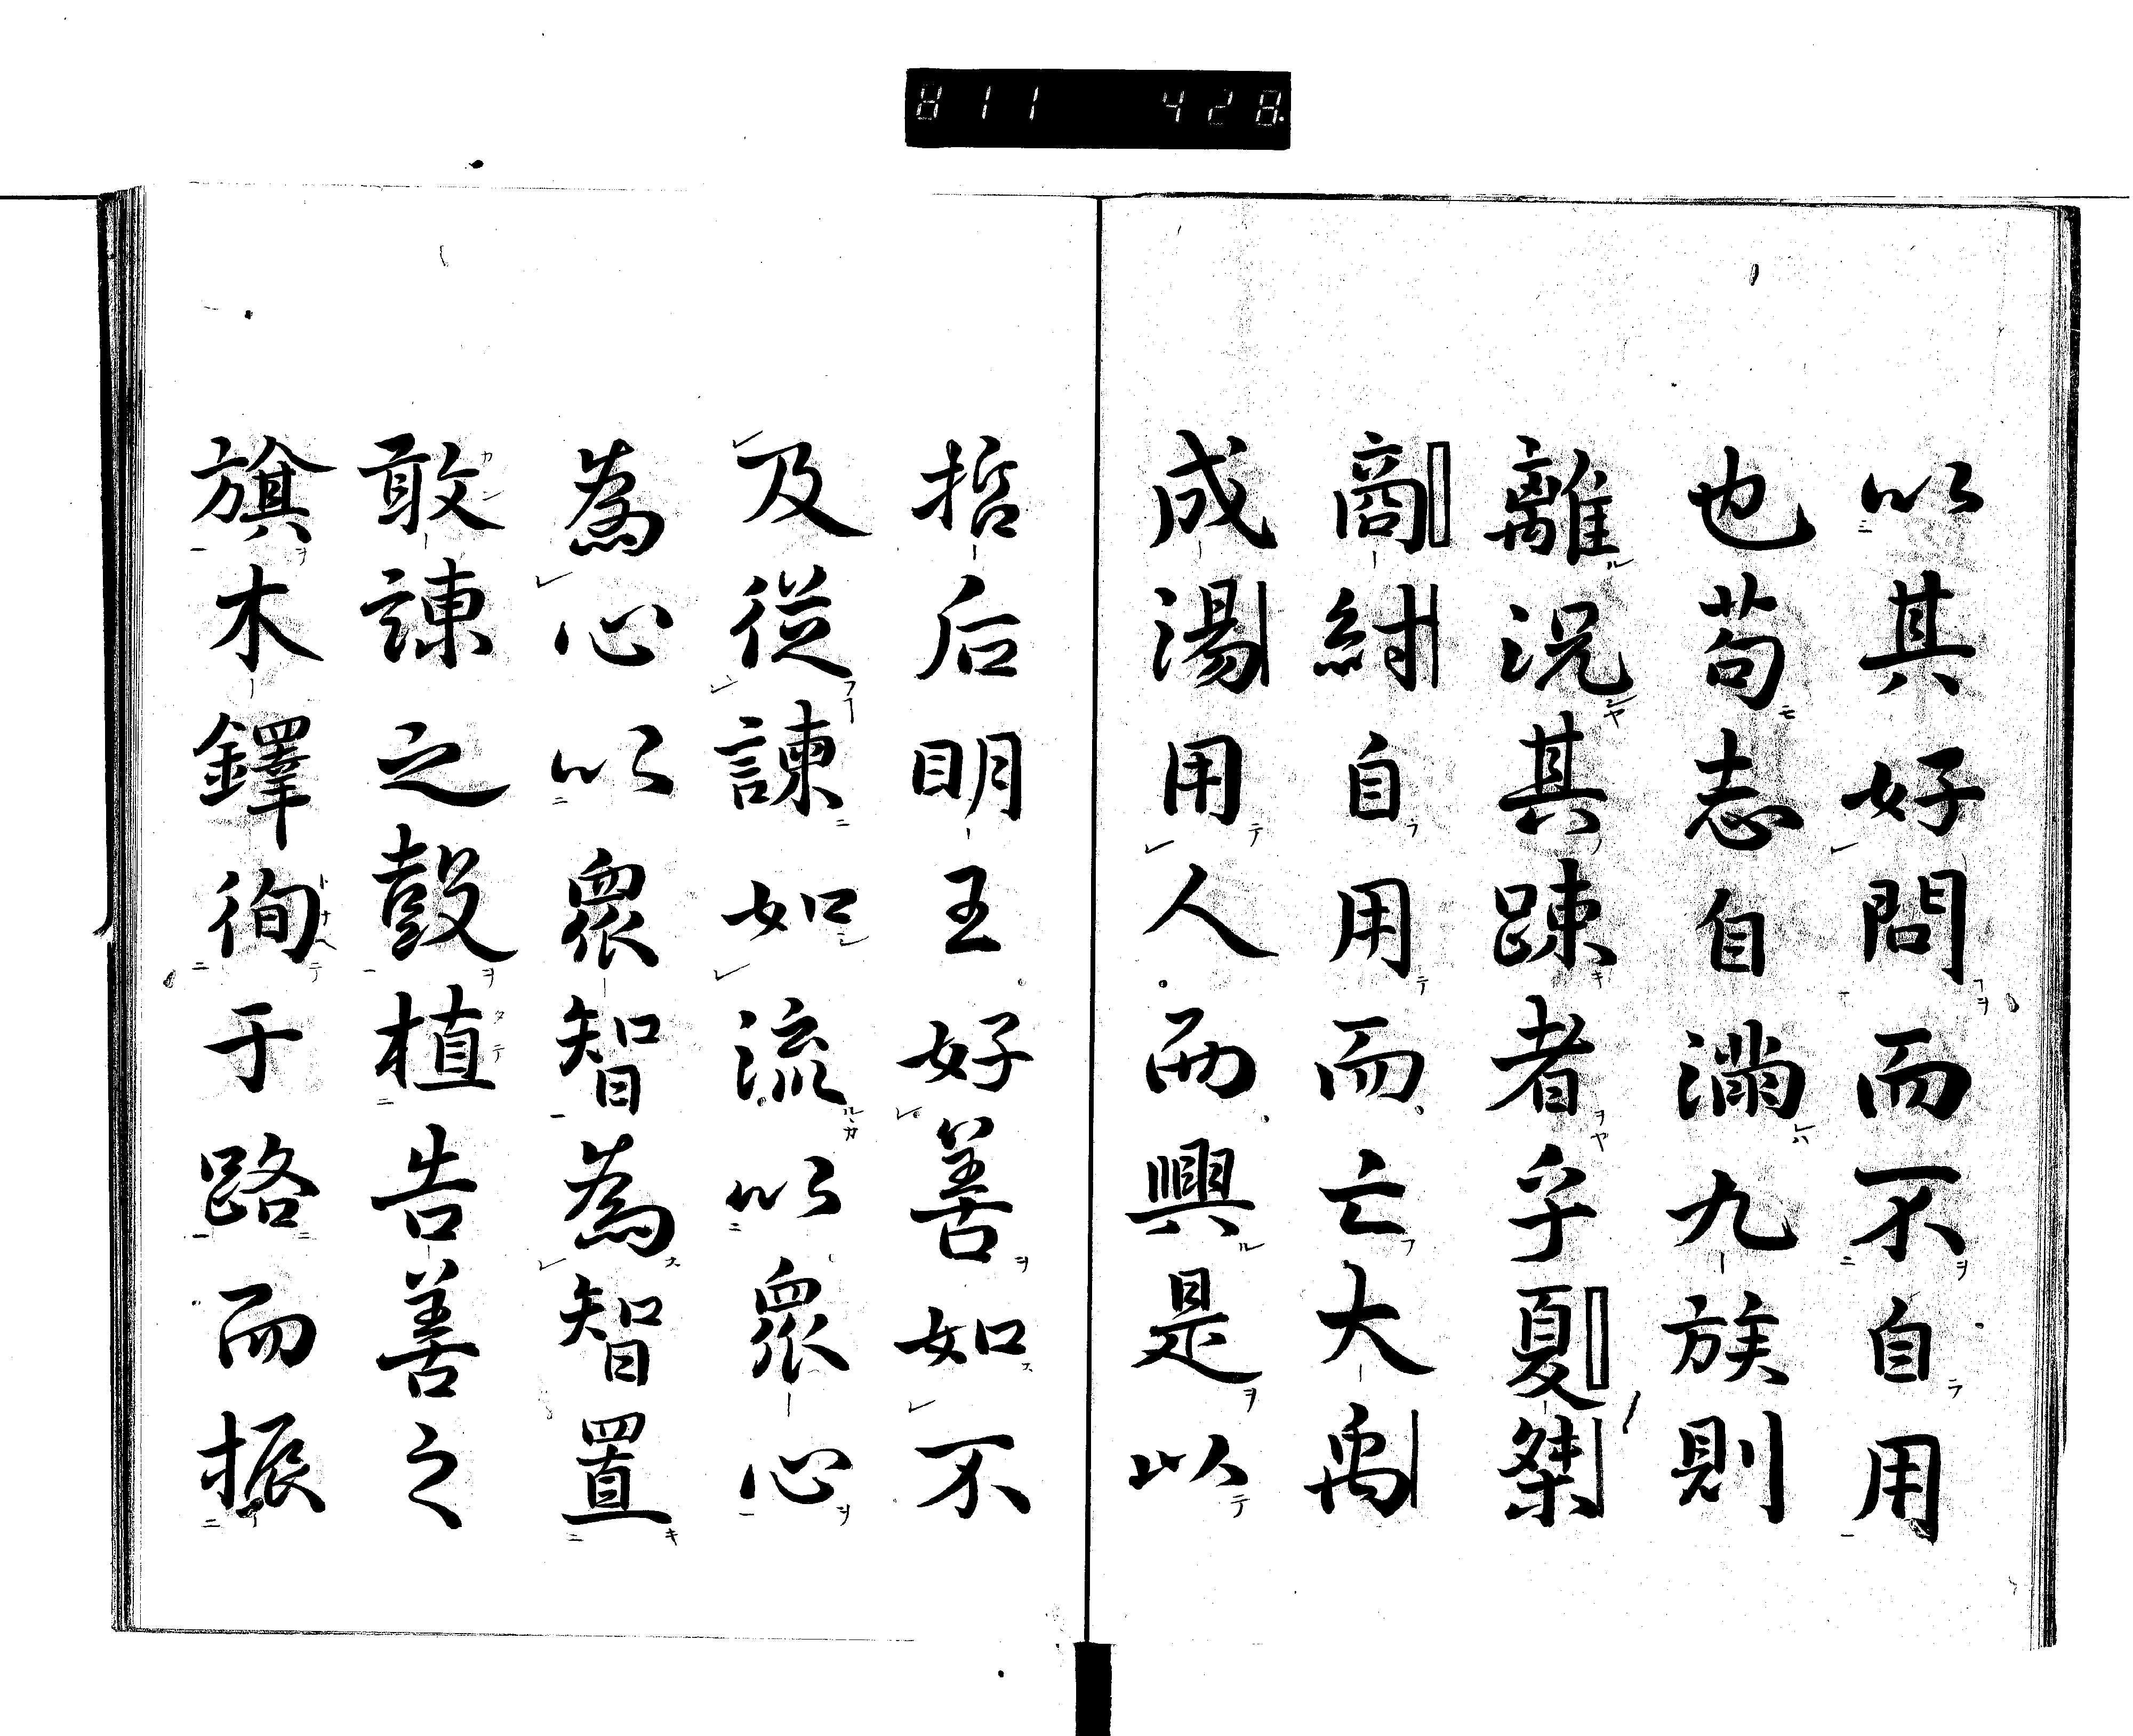 811 428
以其好問而不自用
也苟志自滿九族則
離況其踈者乎夏桀
商紂自用而亡大禹
成湯用人而興是以
哲后明王好善如不
及從諫如流以衆心
為心以衆智為智置
敢諫之鼓植告善之
旗木鐸徇于路而振